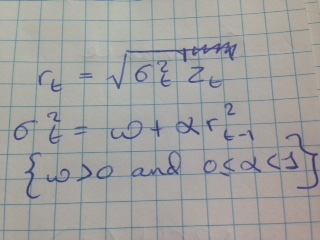 r_t = √σ_t^2 z_t
σ_t^2 = ω + α r_{t-1}^2
{ω > 0 and 0 ≤ α < 1}